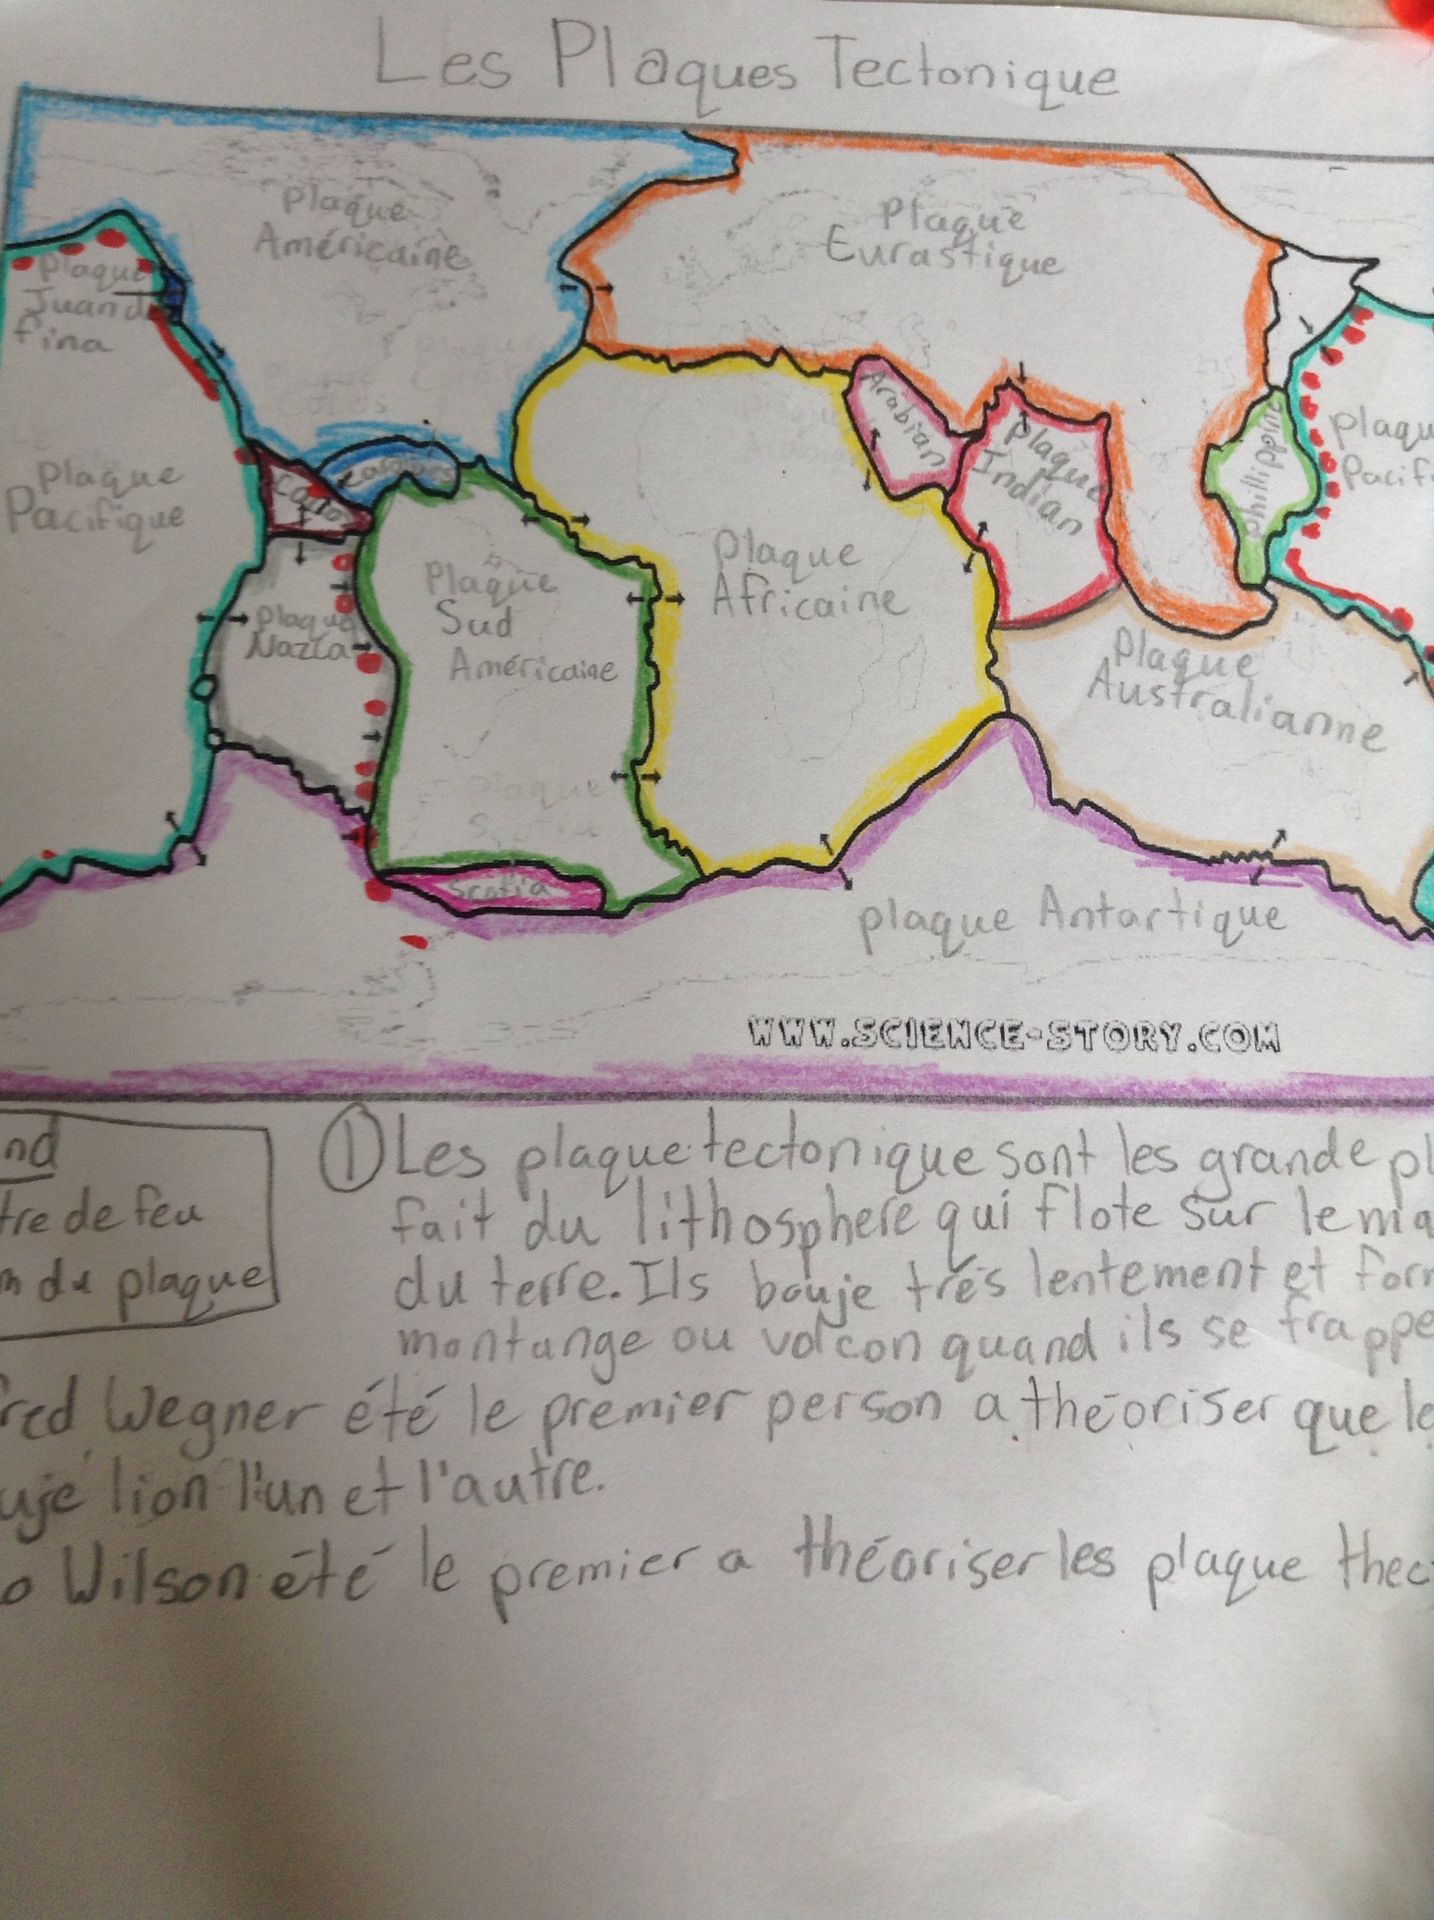 Les Plaques Tectonique
Plaque
Américaine
Plaque
Eurastique
Plaque
Juan d
fina
Arabian
plaque
Indian
Phillippine
plaqu
Pacif
Plaque
Pacifique
Plaque
Sud
Américaine
Plaque
Africaine
Plaque
Nazca
Plaque
Australianne
Scotia
plaque Antartique
WWW.SCIENCE-STORY.COM
nd
tre de feu
n du plaque
① Les plaque tectonique sont les grande pl
fait du lithosphere qui flote sur le ma
du terre. Ils bouje trés lentement et for
montange ou volcon quand ils se frappe
fred Wegner été le premier person a théoriser que le
uje lion l'un et l'autre.
o Wilson été le premier a théoriser les plaque thec